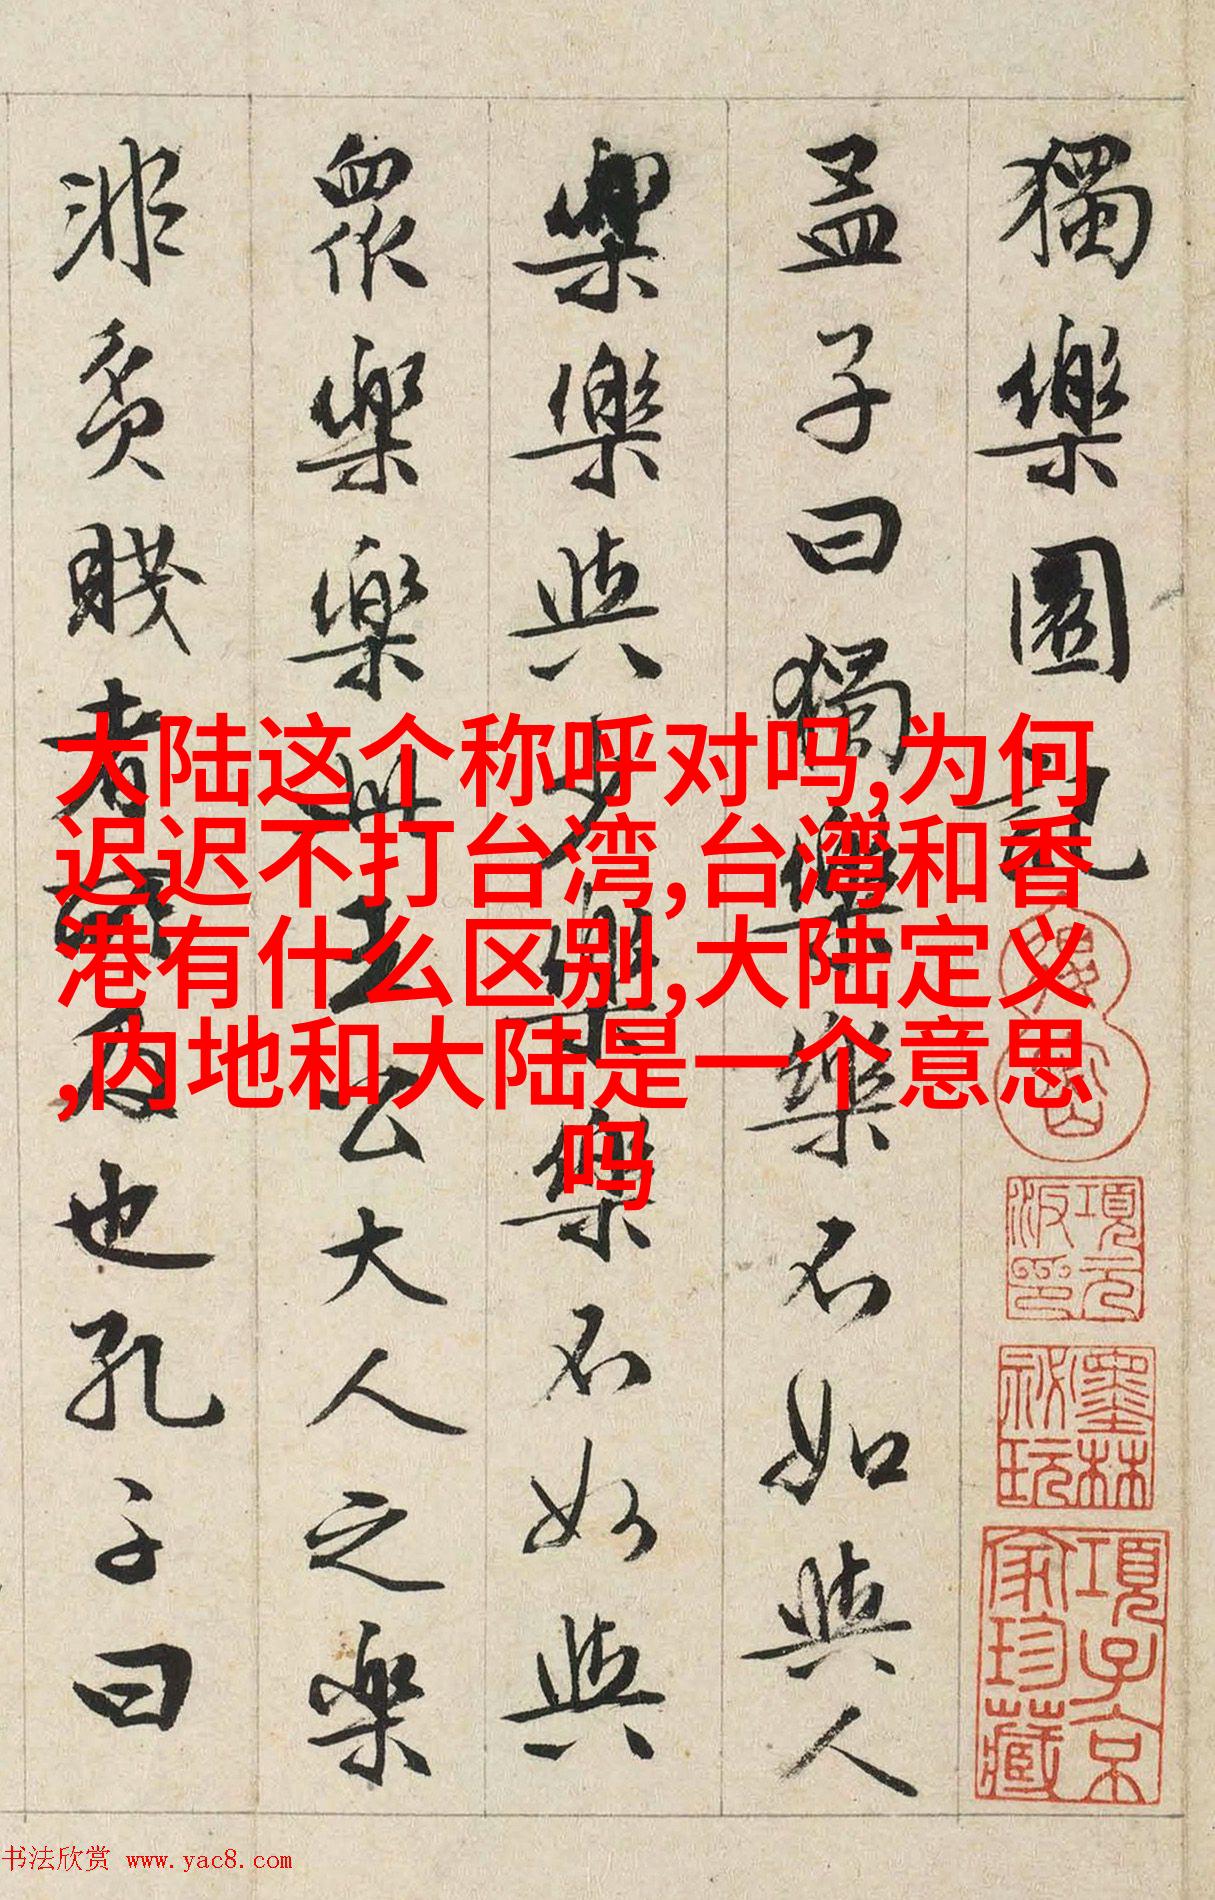 獨樂園記
孟子曰獨樂樂不如與人
樂樂與少樂樂不如與
眾樂樂此王公大人之樂
非貧賤者所及也孔子曰
大陆这个称呼对吗,为何
迟迟不打台湾,台湾和香
港有什么区别,大陆定义
,内地和大陆是一个意思
吗
項元汴印
墨林秘玩
項子京家珍藏
书法欣赏 www.yac8.com